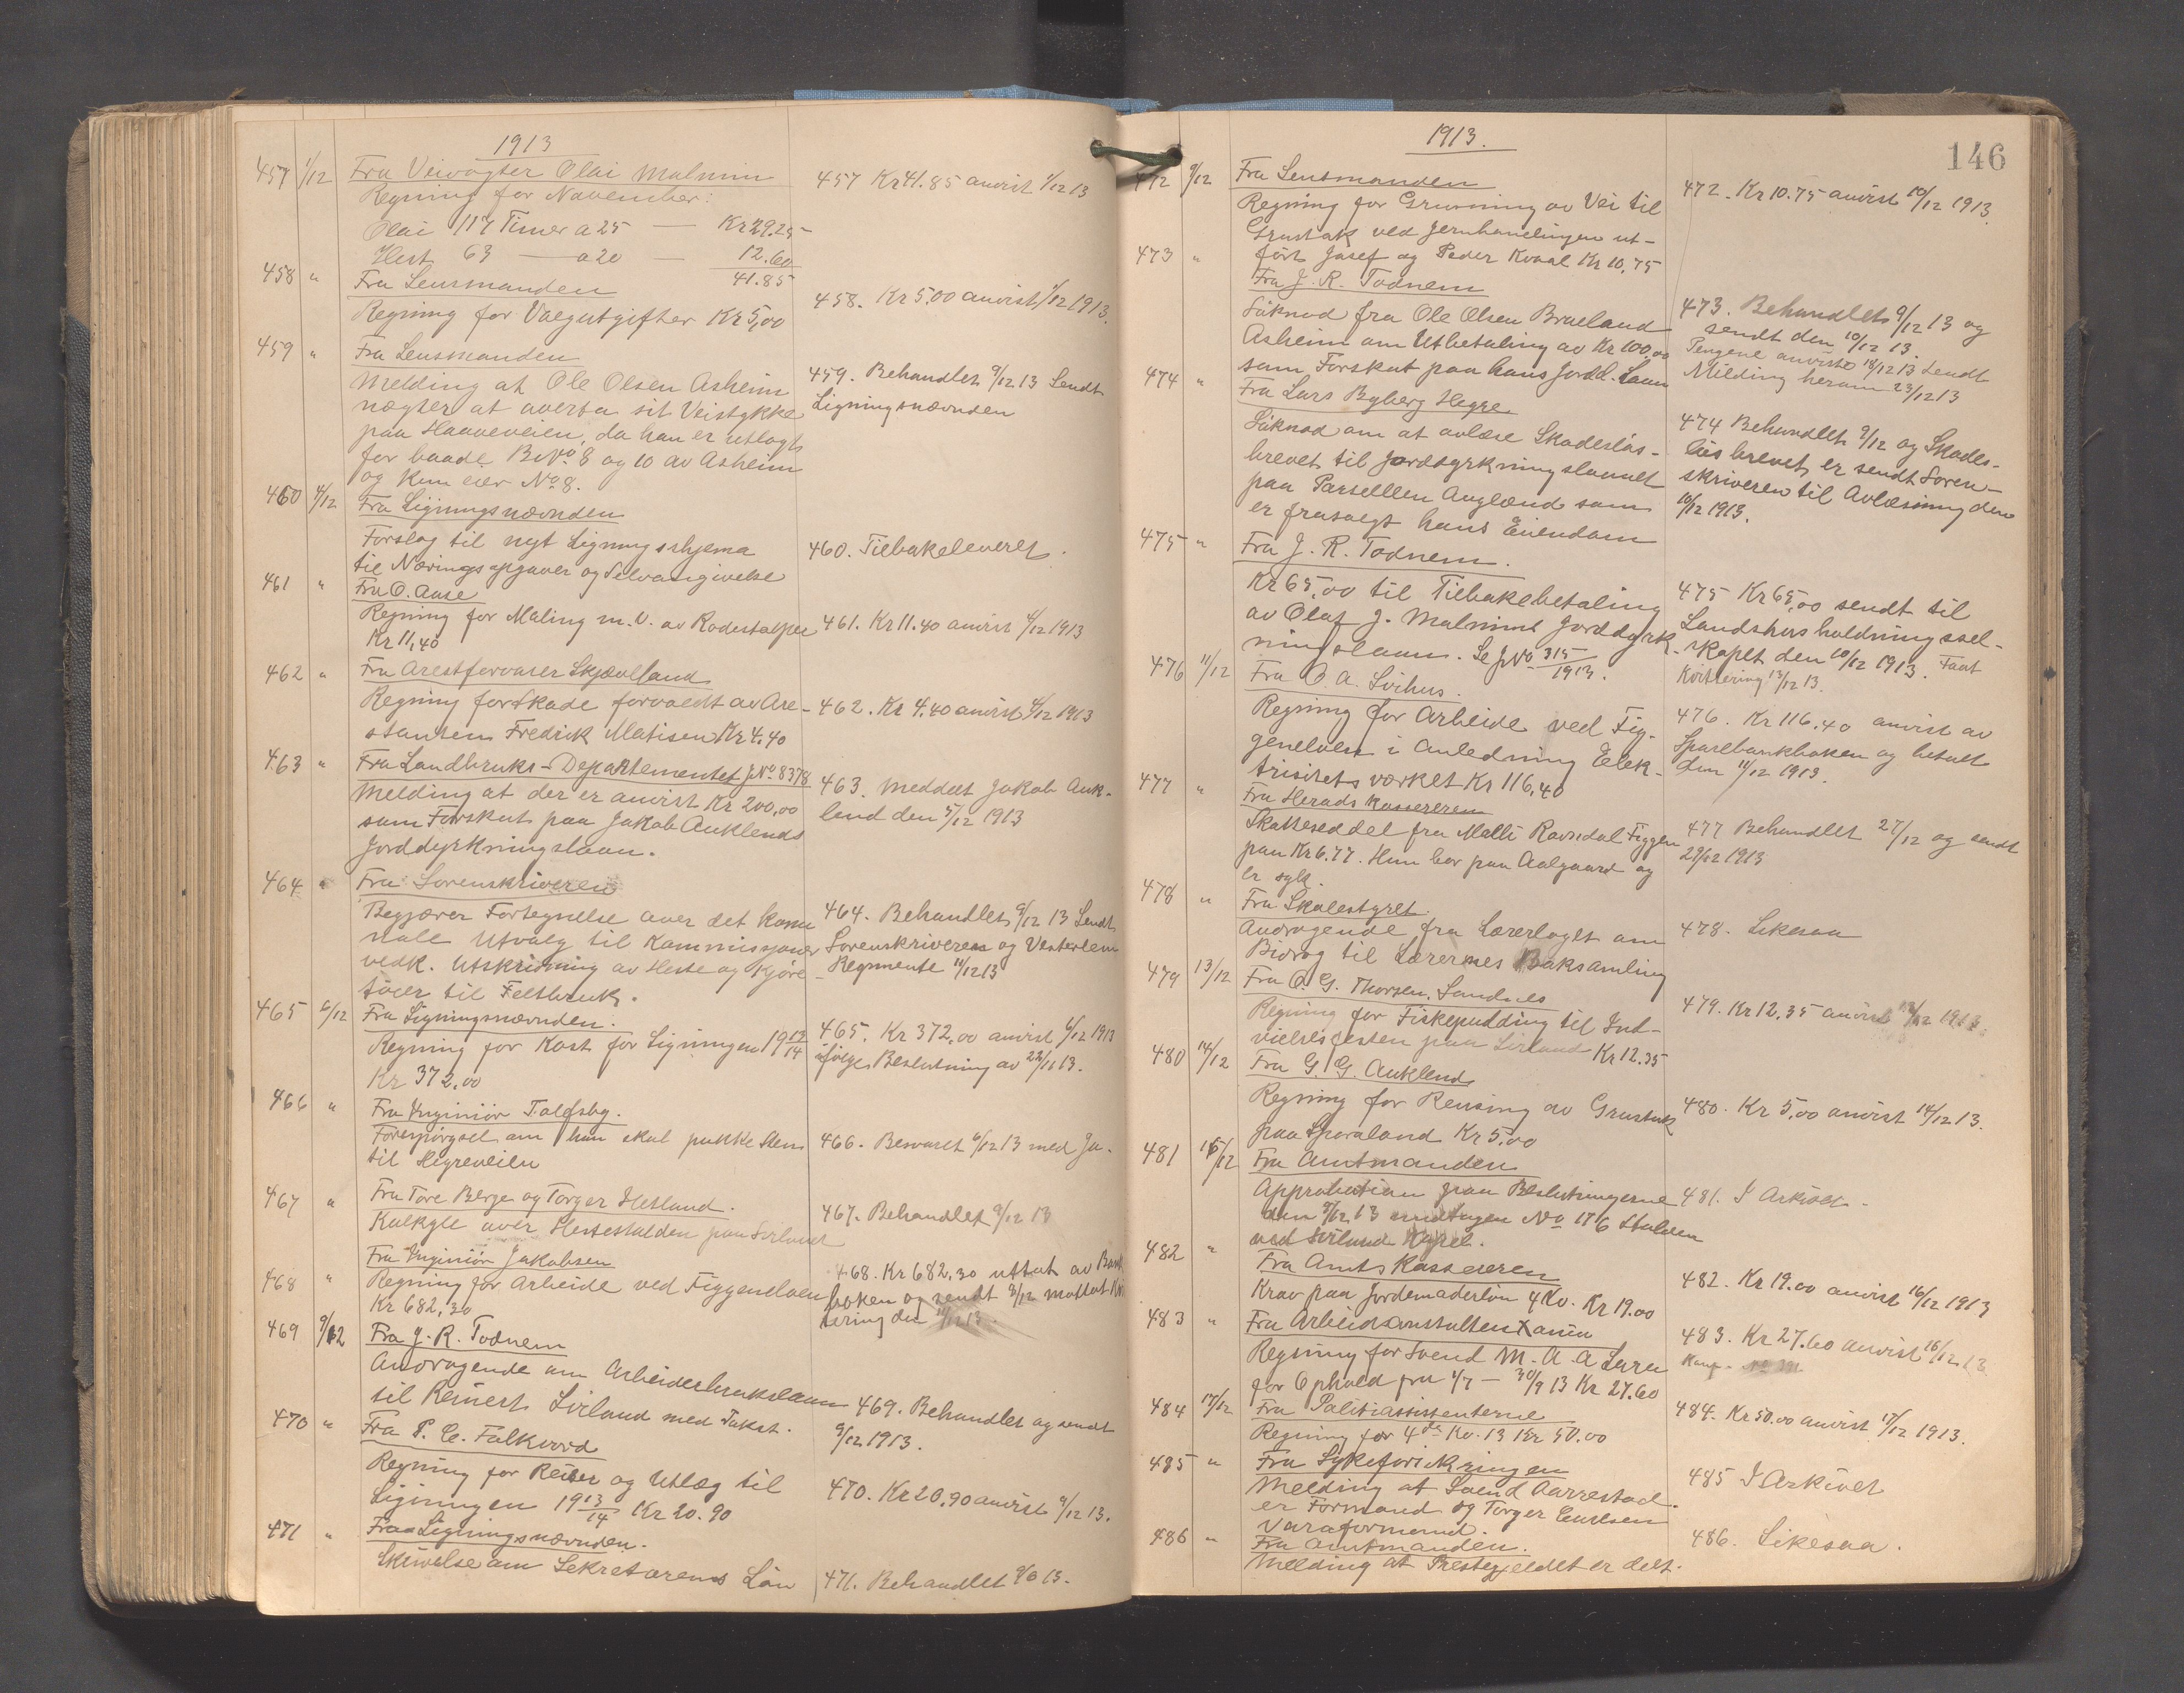 1913
457 1/12 Fra Veivogter Olai Malmin
Regning for November:
Olai 117 Timer a 25 — Kr 29.25
Hest 63 — a 20 — 12.60
41.85
457 Kr 41.85 anvist 1/12 13
458 " Fra Lensmanden
Regning for Valgutgifter Kr 5,00
458. Kr 5.00 anvist 1/12 1913.
459 " Fra Lensmanden
Melding at Ole Olsen Asheim
nægter at overta sit Veistykke
paa Haaveveien, da han er utlagt
for baade BNo. 8 og 10 av Asheim
og kun eier No 8.
459. Behandlet 9/12 13 Sendt
Ligningsnævnden
460 4/12 Fra Ligningsnævnden
Forslag til nyt Ligningsskjema
til Næringsopgaver og Selvangivelse
460. Tilbakeleveret.
461 " Fra O. Aase
Regning for Maling m.v. av Rodestolper
Kr 11,40
461. Kr 11.40 anvist 4/12 1913
462 " Fra Arestforvarer Skjævlland
Regning for Skade forvoldt av Are-
stanten Fredrik Matisen Kr 4.40
462. Kr 4.40 anvist 4/12 1913
463 " Fra Landbruks-Departementet JNo. 8378
Melding at der er anvist Kr 200,00
som Forskut paa Jakob Auklends
Jorddyrkningslaan.
463. Meddelt Jakob Auk-
lend den 5/12 1913
464 " Fra Sorenskriveren
Begjærer Fortegnelse over det komu
nale Utvalg til Kommissjoner
vedk. Utskrivning av Heste og Kjøre
tøier til Feltbruk.
464. Behandlet 9/12 13 Sendt
Sorenskriveren og Vesterlens
Regimente 11/12 13
465 6/12 Fra Ligningsnævnden.
Regning for Kost for Ligningen 19 13/14
Kr 372.00
465. Kr 372,00 anvist 6/12 1913
ifølge Beslutning av 22/11 13.
466 " Fra Ingeniør Tolfsby.
Forespørgsel om han skal pukke Sten
til Hegreveien
466. Besvaret 6/12 13 med Ja.
467 " Fra Tore Berge og Torger Hetland.
Kalkyle over Hestestalden paa Sviland
467. Behandlet 9/12 13
Fra Ingeniør Jakobsen
468 " Regning for Arbeide ved Figgenelven
Kr 682,30
468. Kr 682,30 uttat av Bank
boken og sendt 8/12 Mottat Kvi
tering den 11/12 13.
469 9/12 Fra J. R. Todnem
Andragende om Arbeiderbrukslaan
til Reinert Sviland med Takst.
469. Behandlet og sendt
9/12 1913.
470 " Fra P. C. Falkvord
Regning for Reiser og Utlæg til
Ligningen 19 13/14 Kr 20.90
470. Kr 20,90 anvist 9/12 13.
471 " Fra Ligningsnævnden.
Skrivelse om Sekretærens Løn
471. Behandlet 9/12 13.
1913.
146
472 9/12 Fra Lensmanden
Regning for Grunning av Vei til
Grustak ved Jernhandlingen ut-
ført Josef og Peder Kvaal Kr 10,75
472. Kr 10.75 anvist 10/12 1913
473 " Fra J. R. Todnem
Søknad fra Ole Olsen Braeland
Asheim om Utbetaling av Kr 100,00
som Forskut paa hans Jordd. Laan
473. Behandlet 9/12 13 og
sendt den 10/12 13.
Pengene anvist 18/12 13 Sendt
Melding herom 23/12 13
474 " Fra Lars Byberg Hegre
Søknad om at avlæse Skadesløs-
brevet til Jorddyrkningslaanet
paa Parsellen Auglænd som
er frasolgt hans Eiendom
474 Behandlet 9/12 og Skades-
løsbrevet er sendt Soren-
skriveren til Avlæsning den
10/12 1913.
475 " Fra J. R. Todnem.
Kr 65,00 til Tilbakebetaling
av Olaf J. Malmins Jorddyrk-
ningslaan. Se JNo 315/1913.
475 Kr 65,00 sendt til
Landshusholdningssel-
skapet den 10/12 1913. Faat
Kvittering 13/12 13.
476 11/12 Fra O. A. Svihus.
Regning for Arbeide ved Fig-
genelven i Anledning Elek-
trisitetsverket Kr 116,40
476. Kr 116.40 anvist av
Sparebankboken og betalt
den 11/12 1913.
477 " Fra Heradskassereren
Skatteseddel fra Malli Ravndal Figgen
paa Kr 6.77. Hun bor paa Aalgaard og
er syk.
477 Behandlet 27/12 og sendt
29/12 1913
478 " Fra Skolestyret.
Andragende fra Lærerlaget om
Bidrag til Lærernes Boksamling
478. Likesaa
479 13/12 Fra O. G. Thorsen, Sandnes
Regning for Fiskepudding til Ind-
vielsesfesten paa Sviland Kr 12.35
479. Kr 12,35 anvist 13/12 1913.
480 14/12 Fra G. G. Auklend
Regning for Rensing av Grustak
paa Sporaland Kr 5,00
480. Kr 5,00 anvist 14/12 13.
481 15/12 Fra Amtmanden
Approbation paa Beslutningerne
den 9/12 13 undtagen No 176 Stalden
ved Sviland Kapel.
481. I Arkivet.
482 " Fra Amtskassereren
Krav paa Jordemoderløn 4 Kv. Kr 19.00
482. Kr 19.00 anvist 16/12 1913
483 " Fra Arbeidsanstalten
Regning for Svend M. A. A Lura
for Ophold fra 1/7 — 30/9 13 Kr 27.60
483. Kr 27.60 anvist 16/12 13
484 17/12 Fra Politiassistenterne
Regning for 4de Kv. 13 Kr 50.00
484. Kr 50.00 anvist 17/12 1913.
485 " Fra Sykeforsikringen
Melding at Svend Aarrestad
er Formand og Torger Eivelsen
Varaformand.
485 I Arkivet
486 " Fra Amtmanden.
Melding at Prestegjeldet er delt.
486. Likesaa.